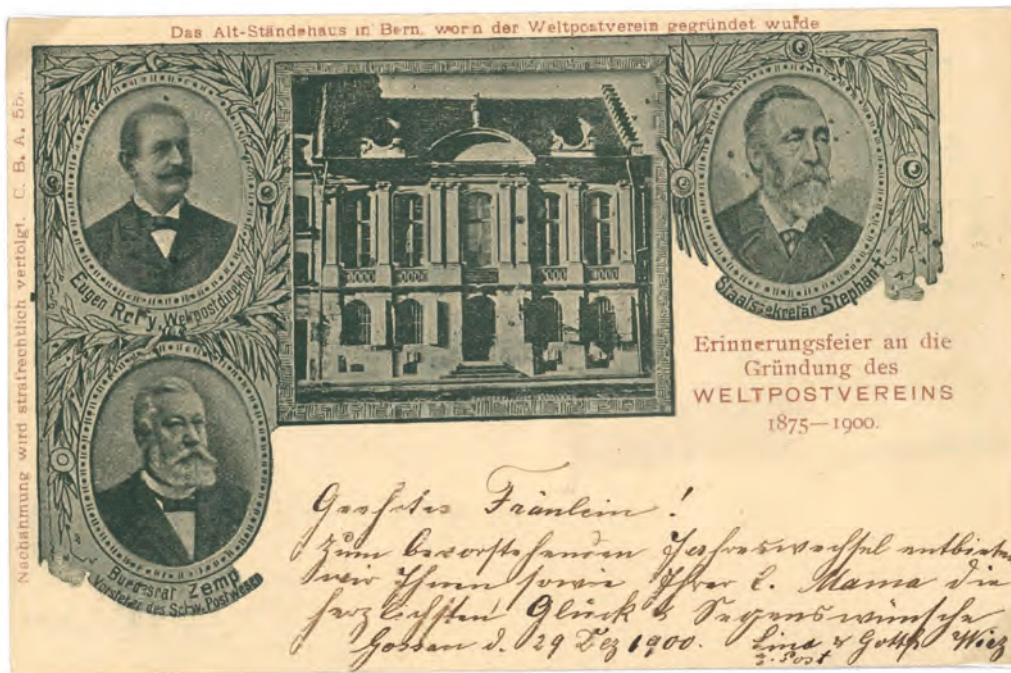 Das Alt-Ständehaus in Bern, worin der Weltpostverein gegründet wurde
Nachahmung wird strafrechtlich verfolgt. C. B. A. 55.
Eugen Ruffy Weltpostdirektor
Staatssekretär Stephan †
Bundesrat Zemp
Vorsteher des Schw. Postwesen
Erinnerungsfeier an die
Gründung des
WELTPOSTVEREINS
1875—1900.
Geehrtes Fräulein!
Zum bevorstehenden Jahreswechsel entbieten
wir Ihnen sowie Ihrer l. Mama die
herzlichsten Glück & Segenswünsche
Gossau d. 29 Dez 1900. Lina & Gottfr
z. Post